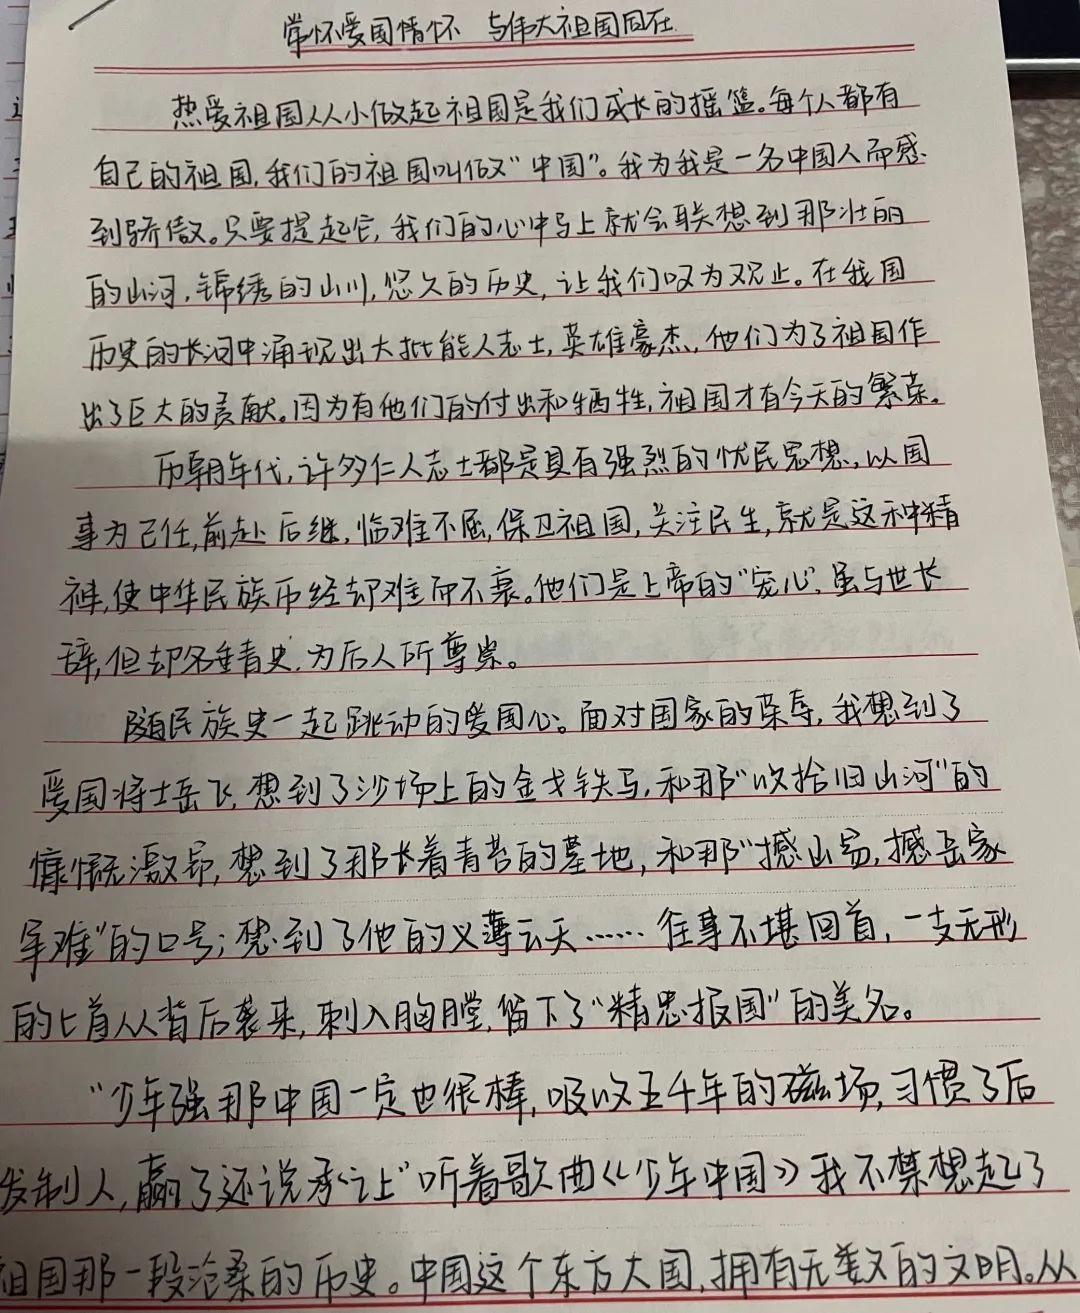 常怀爱国情怀 与伟大祖国同在
热爱祖国从小做起祖国是我们成长的摇篮。每个人都有
自己的祖国,我们的祖国叫做"中国"。我为我是一名中国人而感
到骄傲。只要提起它,我们的心中马上就会联想到那壮丽
的山河,锦绣的山川,悠久的历史,让我们叹为观止。在我国
历史的长河中涌现出大批能人志士,英雄豪杰,他们为了祖国作
出了巨大的贡献。因为有他们的付出和牺牲,祖国才有今天的繁荣。
历朝年代,许多仁人志士都是具有强烈的忧民思想,以国
事为己任,前赴后继,临难不屈,保卫祖国,关注民生,就是这种精
神,使中华民族历经劫难而不衰。他们是上帝的"宠儿",虽与世长
辞,但却名垂青史,为后人所尊崇。
随民族史一起跳动的爱国心。面对国家的荣辱,我想到了
爱国将士岳飞,想到了沙场上的金戈铁马,和那"收拾旧山河"的
慷慨激昂,想到了那长着青苔的墓地,和那"撼山易,撼岳家
军难"的口号;想到了他的义薄云天……往事不堪回首,一支无形
的匕首从背后袭来,刺入胸膛,留下了"精忠报国"的美名。
"少年强那中国一定也很棒,吸收五千年的磁场,习惯了后
发制人,赢了还说承让"听着歌曲《少年中国》我不禁想起了
祖国那一段沧桑的历史。中国这个东方大国,拥有无数的文明。从